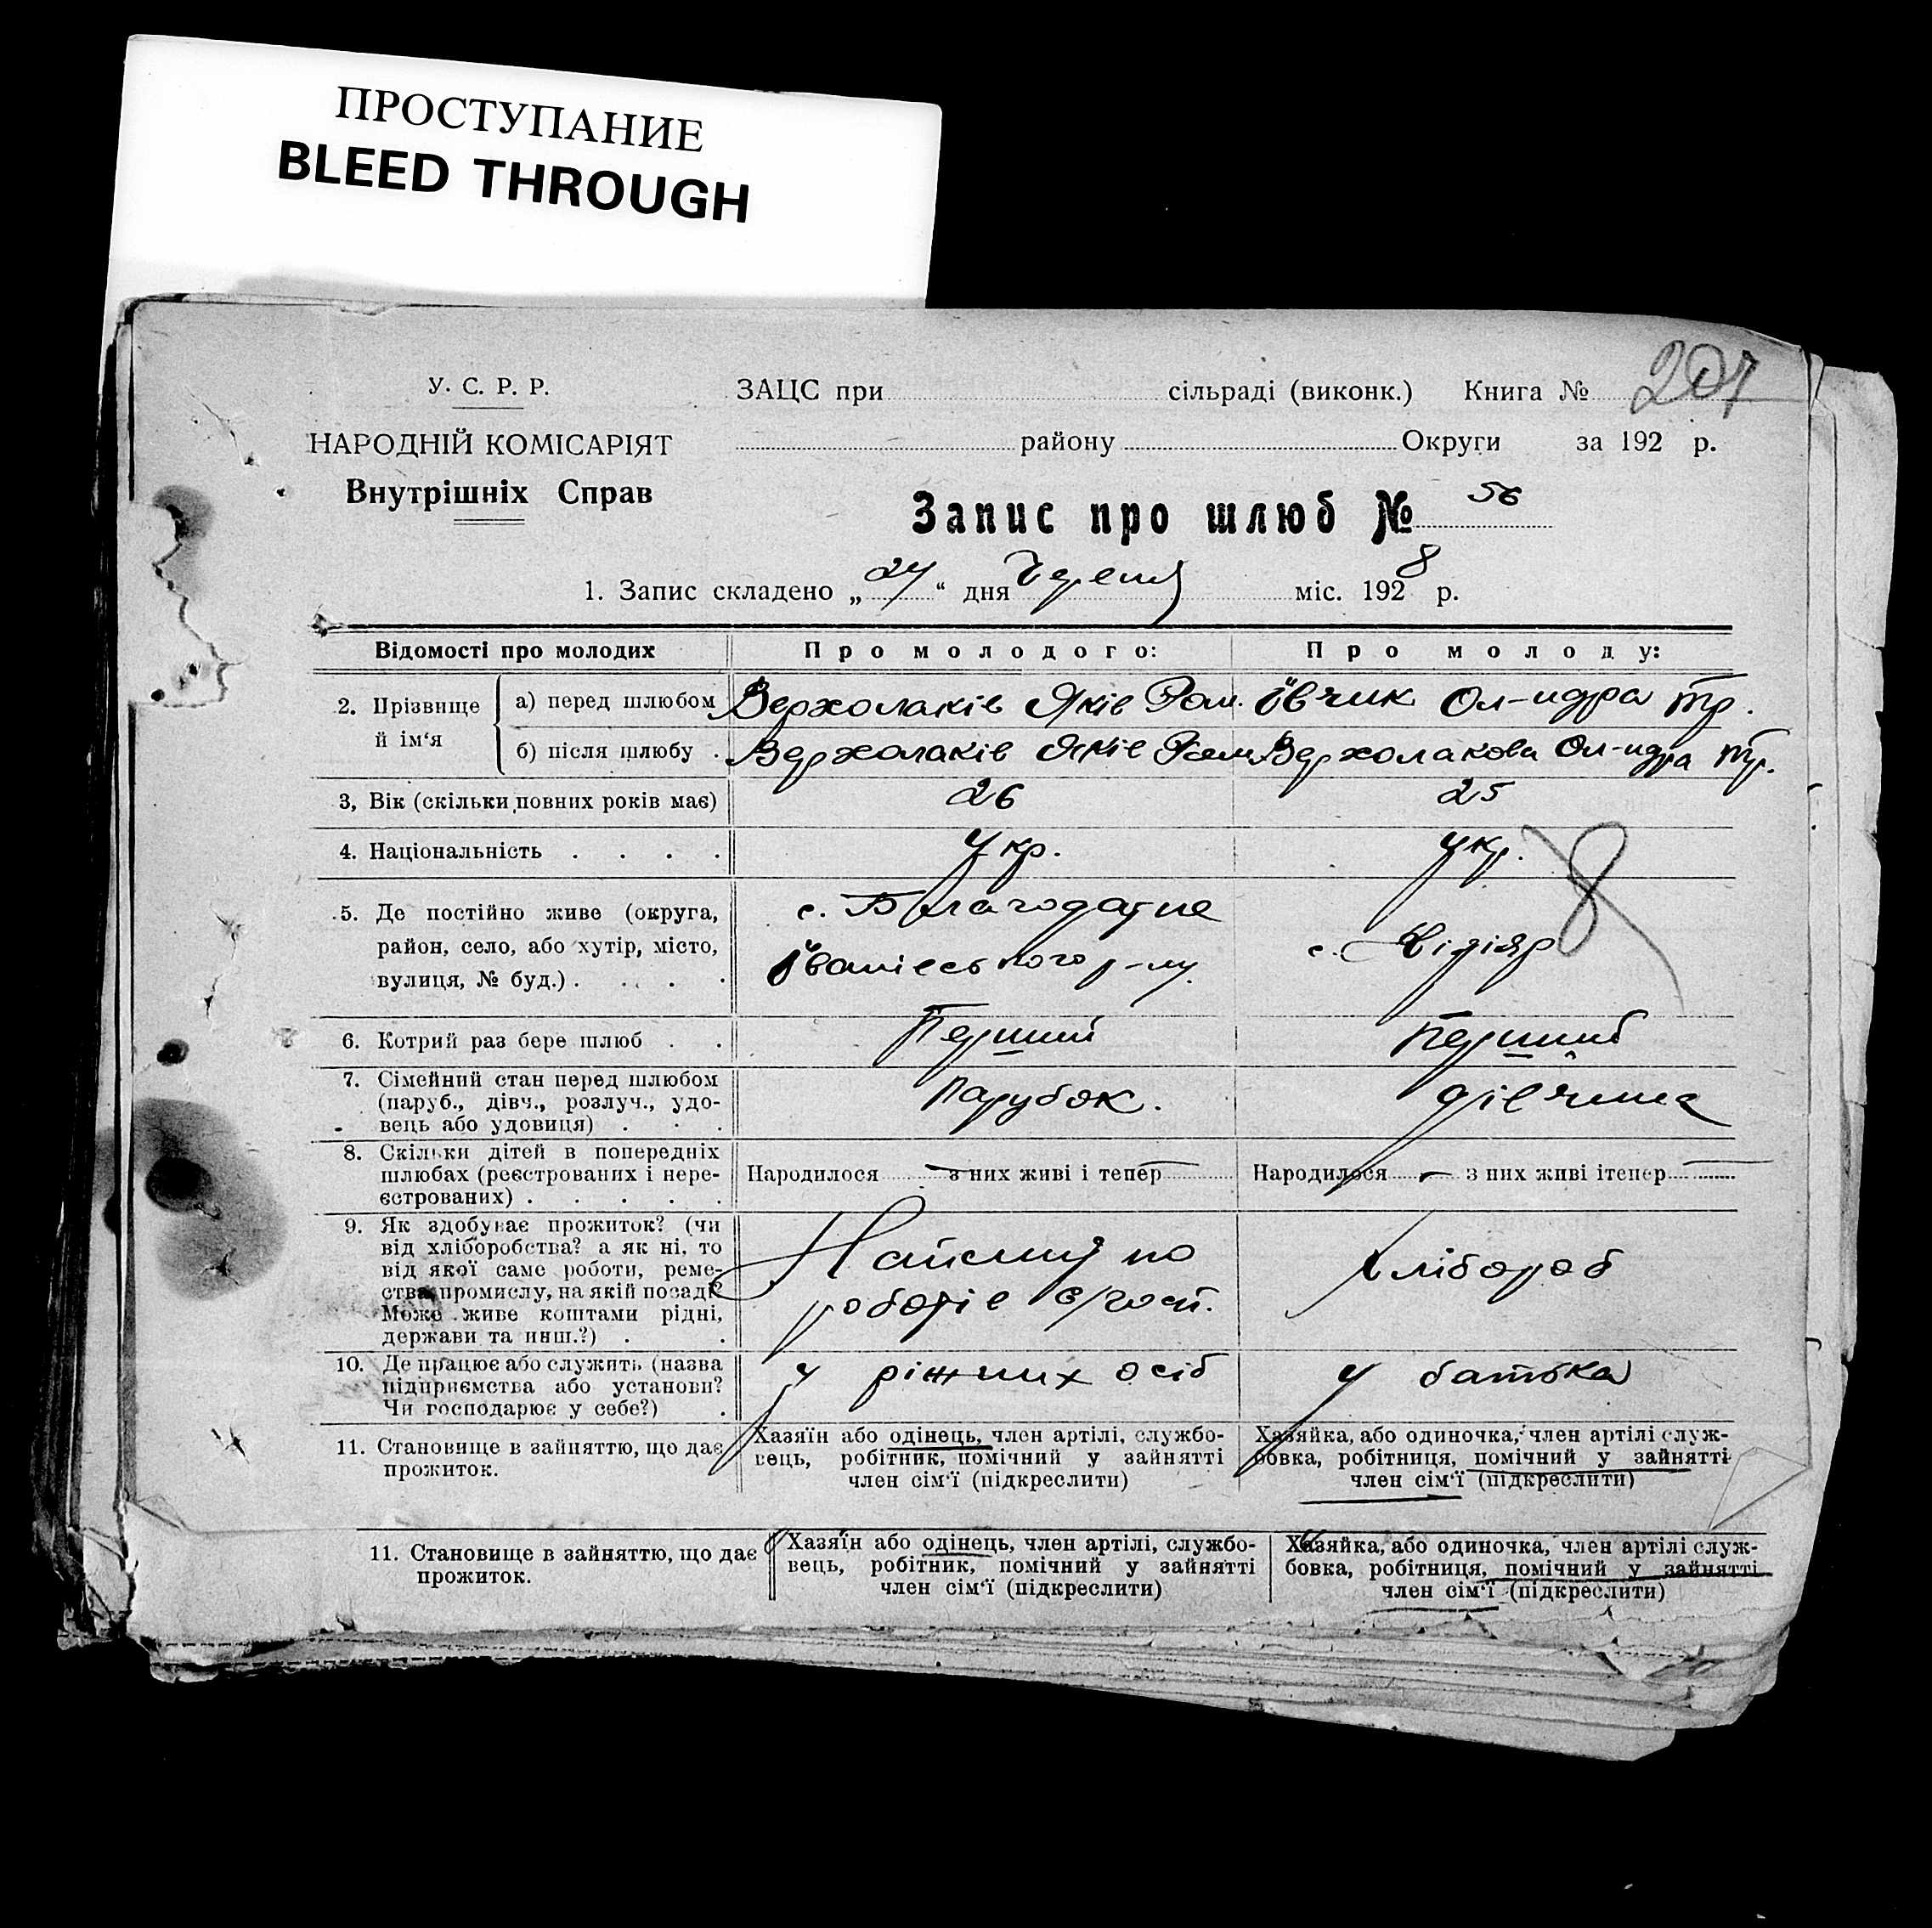 ПРОСТУПАНИЕ
BLEED THROUGH
207
У. С. Р. Р.
ЗАЦС при сільраді (виконк.) Книга №
НАРОДНІЙ КОМІСАРІЯТ
району Округи за 192 р.
Внутрішніх Справ
Запис про шлюб № 56
1. Запис складено „24“ дня Червня міс. 1928 р.
Відомості про молодих
Про молодого:
Про молоду:
2. Прізвище й ім'я
а) перед шлюбом
Верхолаків Яків Ром.
Івчик Ол-ндра Тр.
б) після шлюбу .
Верхолаків Яків Ром.
Верхолакова Ол-ндра Тр.
3, Вік (скільки повних років має)
26
25
4. Національність . . . .
Укр.
укр.
8
5. Де постійно живе (округа,
район, село, або хутір, місто,
вулиця, № буд.) . . . .
с. Благодатне
Іванівського р-ну.
с.
6. Котрий раз бере шлюб . .
Перший
Перший
7. Сімейний стан перед шлюбом
(паруб., дівч., розлуч., удо-
вець або удовиця) . . .
Парубок.
дівчина
8. Скільки дітей в попередніх
шлюбах (реєстрованих і нере-
єстрованих) . . . . .
Народилося — з них живі і тепер —
Народилося — з них живі ітепер —
9. Як здобуває прожиток? (чи
від хліборобства? а як ні, то
від якої саме роботи, реме-
ства промислу, на якій посаді?
Може живе коштами рідні,
держави та инш.?) . .
Наймит по
роботі в с/госп.
Хлібороб
10. Де працює або служить (назва
підприємства або установи?
Чи господарює у себе?) .
у ріжних осіб
у батька
11. Становище в зайняттю, що дає
прожиток.
Хазяїн або одінець, член артілі, службо-
вець, робітник, помічний у зайнятті
член сім'ї (підкреслити)
Хазяйка, або одиночка, член артілі служ-
бовка, робітниця, помічний у зайнятті
член сім'ї (підкреслити)
11. Становище в зайняттю, що дає
прожиток.
Хазяїн або одінець, член артілі, службо-
вець, робітник, помічний у зайнятті
член сім'ї (підкреслити)
Хазяйка, або одиночка, член артілі служ-
бовка, робітниця, помічний у зайнятті
член сім'ї (підкреслити)